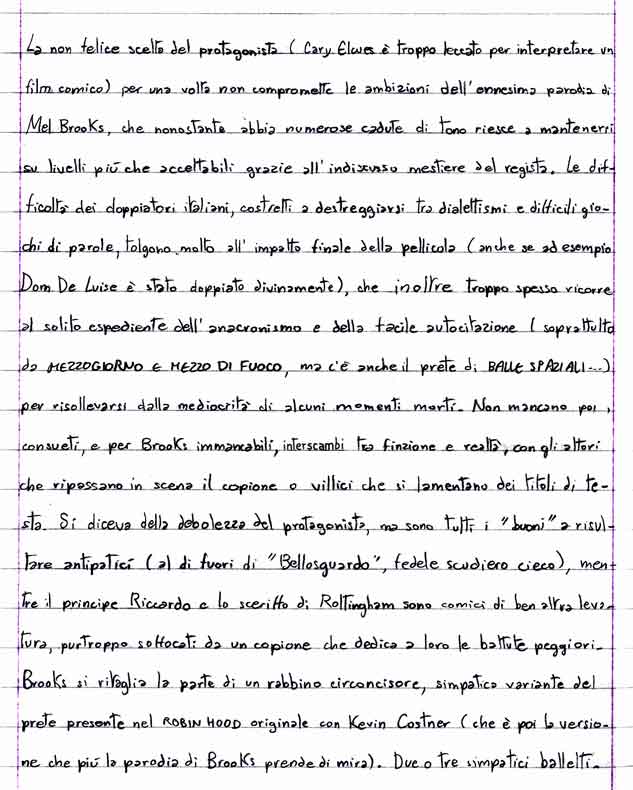 La non felice scelta del protagonista (Cary Elwes è troppo leccato per interpretare un
film comico) per una volta non compromette le ambizioni dell'ennesima parodia di
Mel Brooks, che nonostante abbia numerose cadute di tono riesce a mantenersi
su livelli più che accettabili grazie all'indiscusso mestiere del regista. Le dif-
ficoltà dei doppiatori italiani, costretti a destreggiarsi tra dialettismi e difficili gio-
chi di parole, tolgono molto all'impatto finale della pellicola (anche se ad esempio
Dom De Luise è stato doppiato divinamente), che inoltre troppo spesso ricorre
al solito espediente dell'anacronismo e della facile autocitazione (soprattutto
da MEZZOGIORNO E MEZZO DI FUOCO, ma c'è anche il prete di BALLE SPAZIALI...)
per risollevarsi dalla mediocrità di alcuni momenti morti. Non mancano poi i
consueti, e per Brooks immancabili, interscambi tra finzione e realtà, con gli attori
che ripassano in scena il copione o villici che si lamentano dei titoli di te-
sta. Si diceva della debolezza del protagonista, ma sono tutti i "buoni" a risul-
tare antipatici (al di fuori di "Bellosguardo", fedele scudiero cieco), men
tre il principe Riccardo e lo sceriffo di Rottingham sono comici di ben altra leva-
tura, purtroppo soffocati da un copione che dedica a loro le battute peggiori.
Brooks si ritaglia la parte di un rabbino circoncisore, simpatica variante del
prete presente nel ROBIN HOOD originale con Kevin Costner (che è poi la versio-
ne che più la parodia di Brooks prende di mira). Due o tre simpatici balletti.